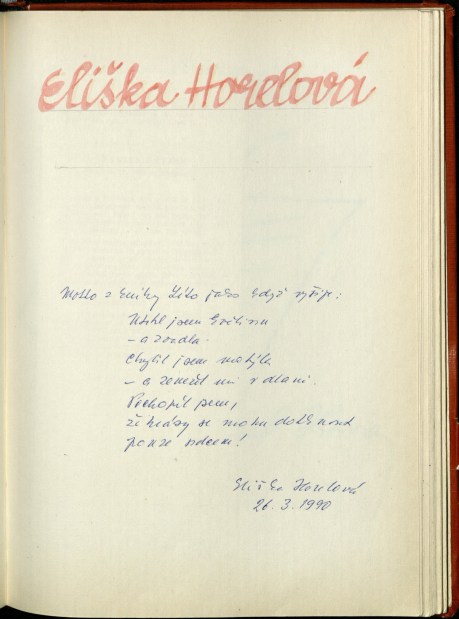 Eliška Horelová
Motto z knihy Léto jako když vyšije:
Utrhl jsem květinu
– a zvadla.
Chytil jsem motýla
– a zemřel mi v dlani.
Pochopil jsem,
že krásy se mohu dotknout
pouze srdcem!
Eliška Horelová
26.3.1990